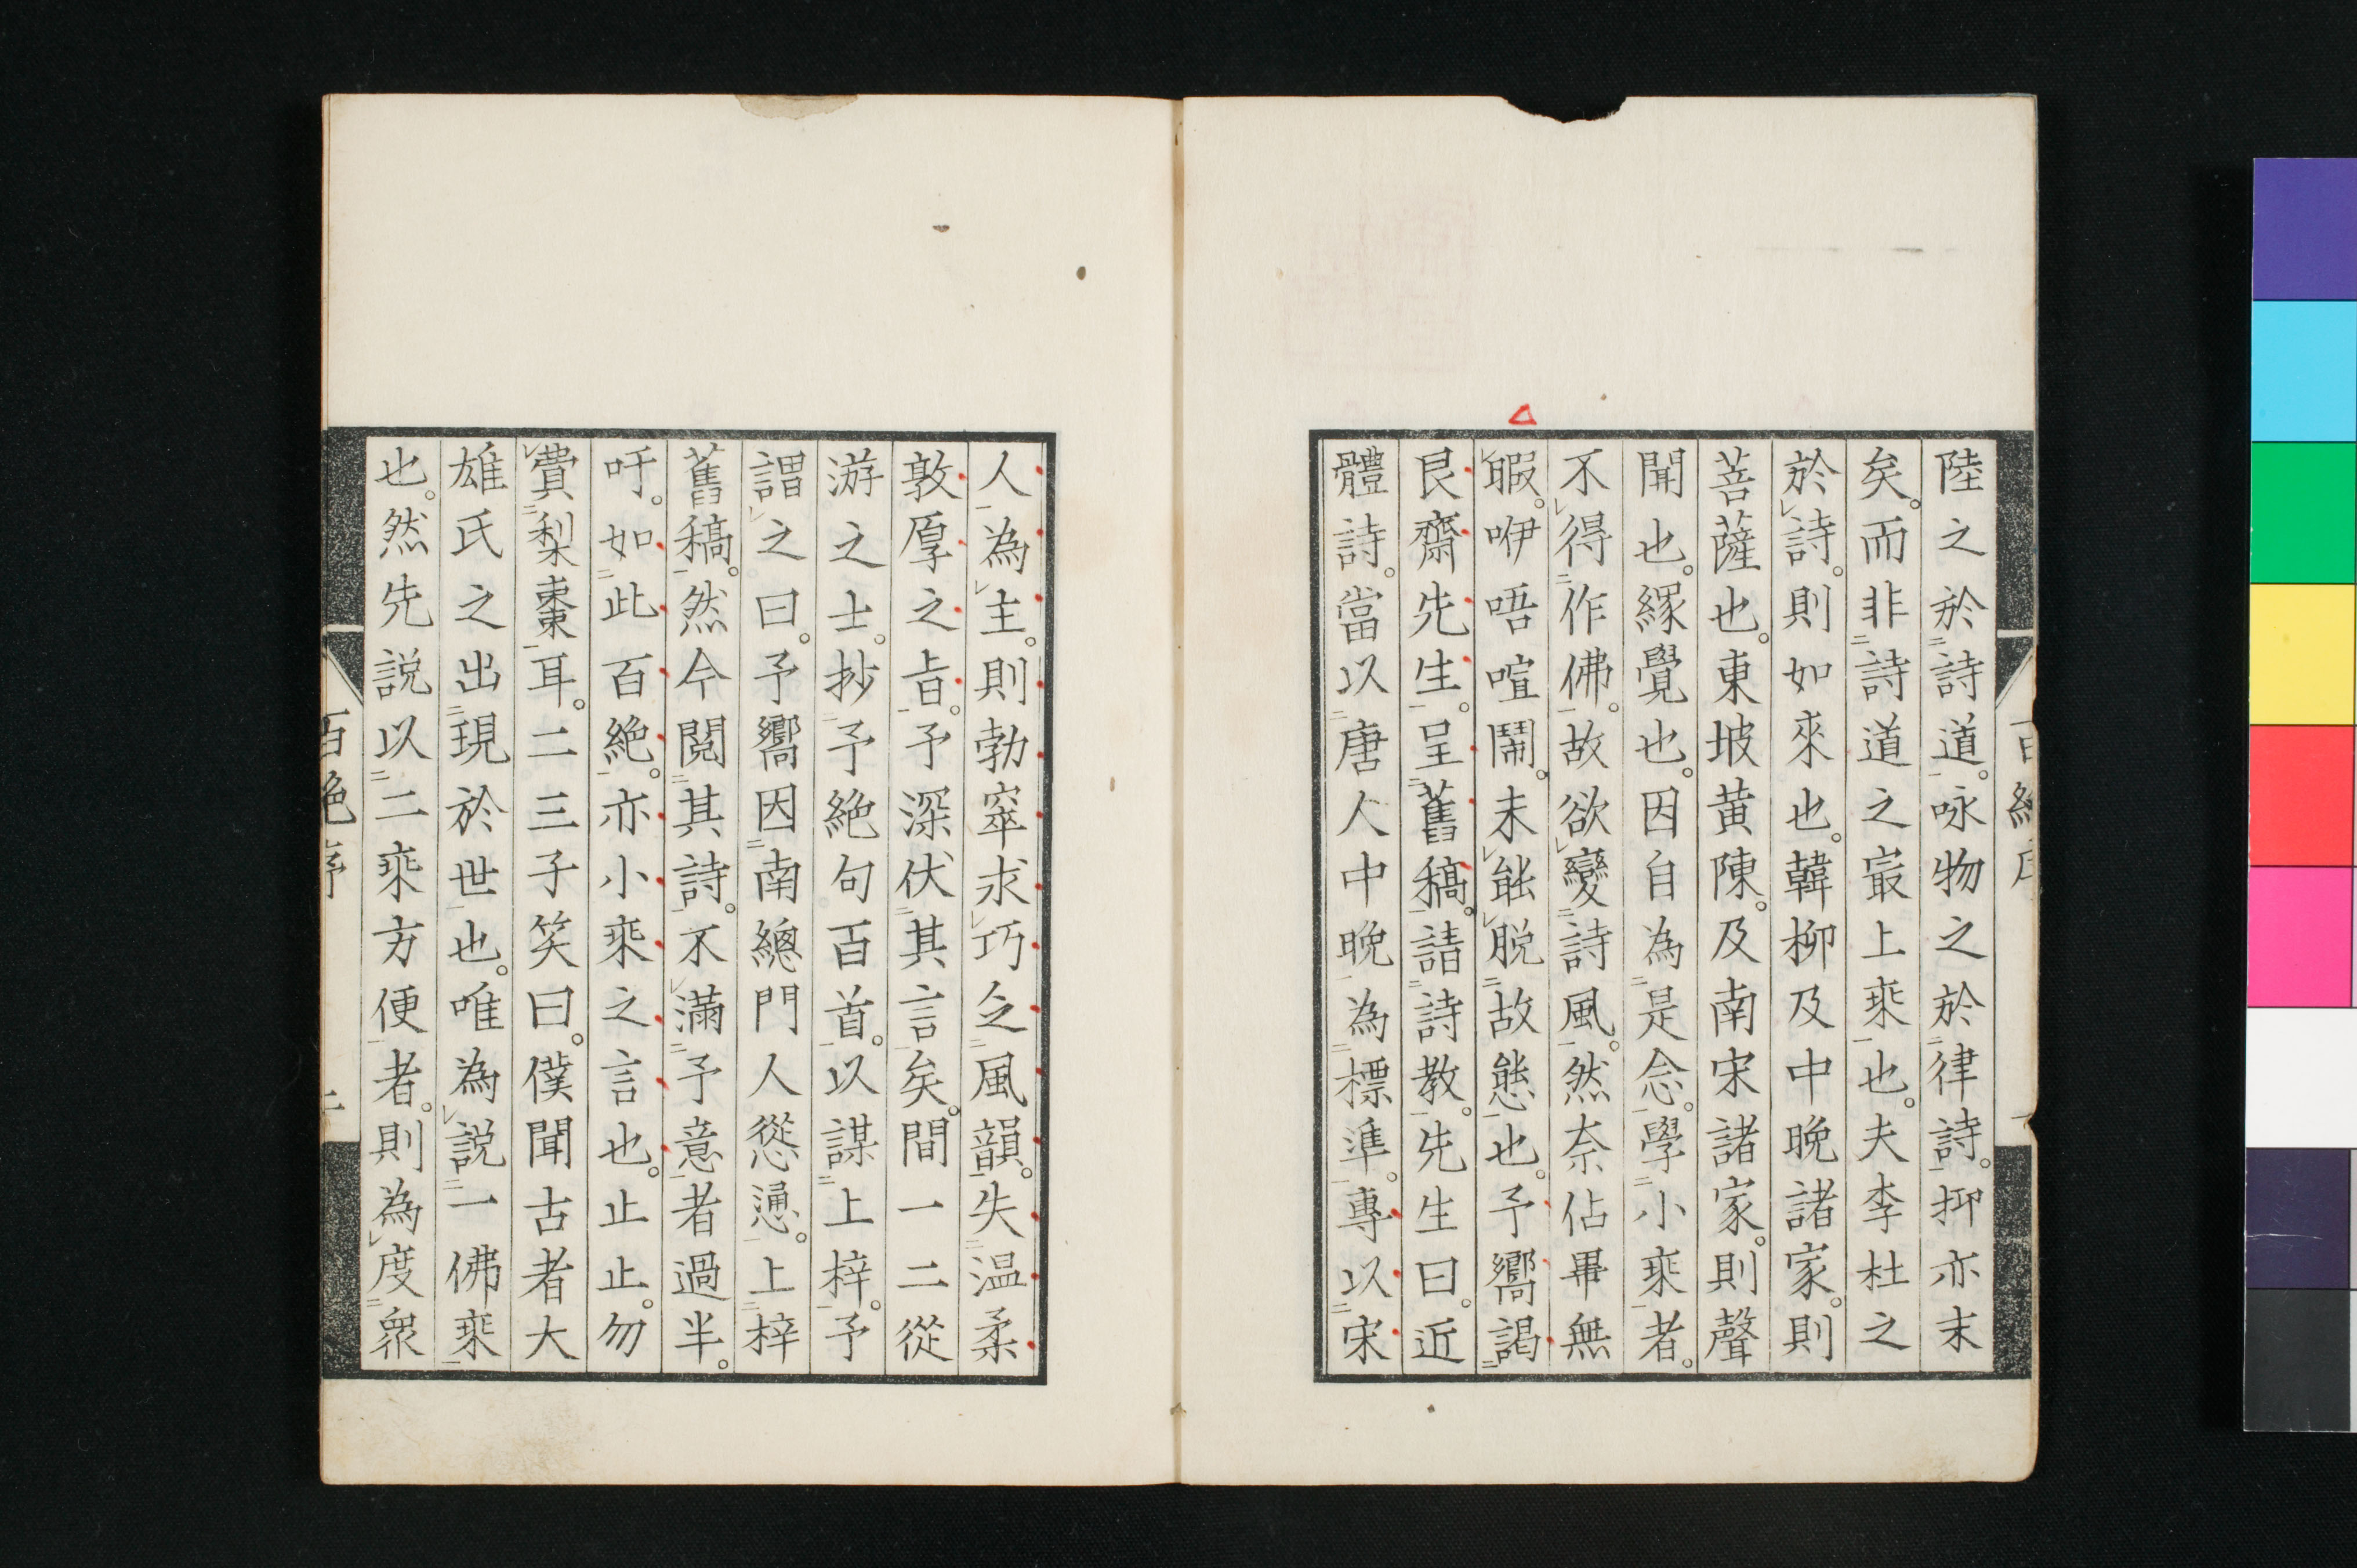 陸之於詩道。咏物之於律詩。抑亦末
矣。而非詩道之㝡上乘也。夫李杜之
於詩。則如來也。韓柳及中晚諸家。則
菩薩也。東坡黄陳。及南宋諸家。則聲
聞也。緣覺也。因自為是念。學小乘者。
不得作佛。故欲變詩風。然奈佔畢無
暇。咿唔喧鬧。未能脱故態也。予嚮謁
艮齋先生。呈舊稿。請詩教。先生曰。近
體詩。當以唐人中晚為標準。專以宋
人為主。則勃窣求巧乏風韻。失温柔
敦厚之旨。予深伏其言矣。間一二從
游之士。抄予絶句百首。以謀上梓。予
謂之曰。予嚮因南總門人慫慂。上梓
舊稿。然今閲其詩。不滿予意者過半。
吁。如此百絶。亦小乘之言也。止止。勿
費梨棗耳。二三子笑曰。僕聞古者大
雄氏之出現於世也。唯為説一佛乘
也。然先説以二乘方便者。則為度衆
百絶序
二